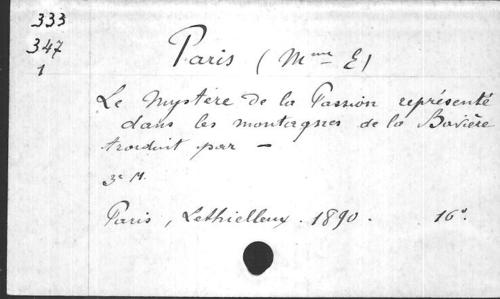 333
347
1
Paris (Mme E)
Le Mystère de la Passion représenté
dans les montagnes de la Bavière
traduit par —
Paris, Lethielleux. 1890. 16°.